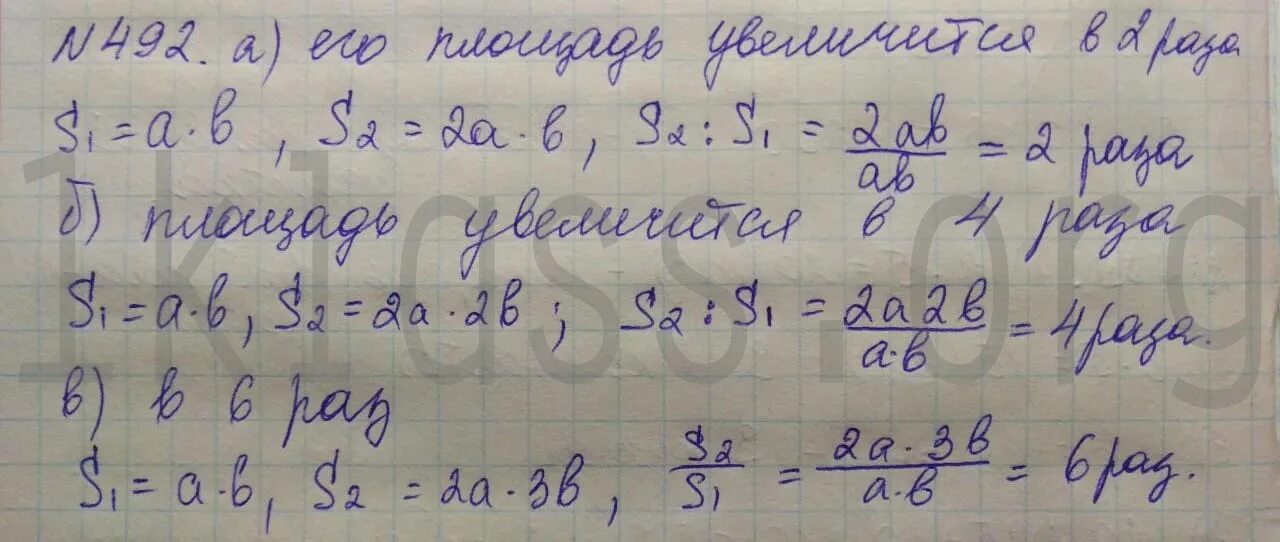 N 492. а) его площадь увеличится в 2 раза
S₁ = a · b , S₂ = 2a · b , S₂ : S₁ = 2ab/ab = 2 раза
б) площадь увеличится в 4 раза
S₁ = a · b , S₂ = 2a · 2b ; S₂ : S₁ = 2a2b/a·b = 4 раза.
в) в 6 раз
S₁ = a · b , S₂ = 2a · 3b , S₂/S₁ = 2a · 3b/a · b = 6 раз.
1klass.org